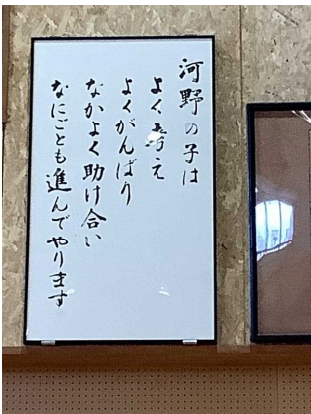 河野の子は
よく考え
よくがんばり
なかよく助け合い
なにごとも進んでやります